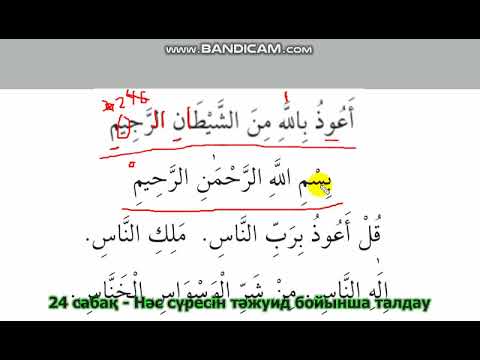 www.BANDICAM.com
246
أَعُوذُ بِاللَّهِ مِنَ الشَّيْطَانِ الرَّجِيمِ
بِسْمِ اللَّهِ الرَّحْمَٰنِ الرَّحِيمِ
قُلْ أَعُوذُ بِرَبِّ النَّاسِ. مَلِكِ النَّاسِ.
إِلَٰهِ النَّاسِ. مِنْ شَرِّ الْوَسْوَاسِ الْخَنَّاسِ.
24 сабақ - Нәс сүресін тәжуид бойынша талдау